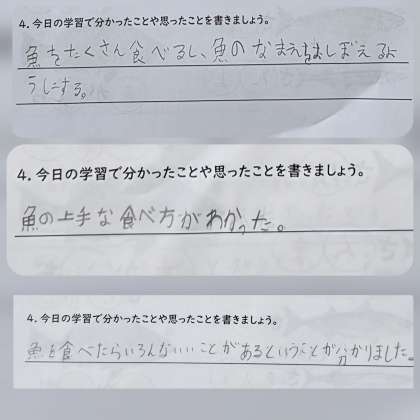 4. 今日の学習で分かったことや思ったことを書きましょう。
魚をたくさん食べるし、魚のなまえもおしぼえるよ
うにする。
4. 今日の学習で分かったことや思ったことを書きましょう。
魚の上手な食べ方がわかった。
4. 今日の学習で分かったことや思ったことを書きましょう。
魚を食べたらいろんないいことがあるということが分かりました。